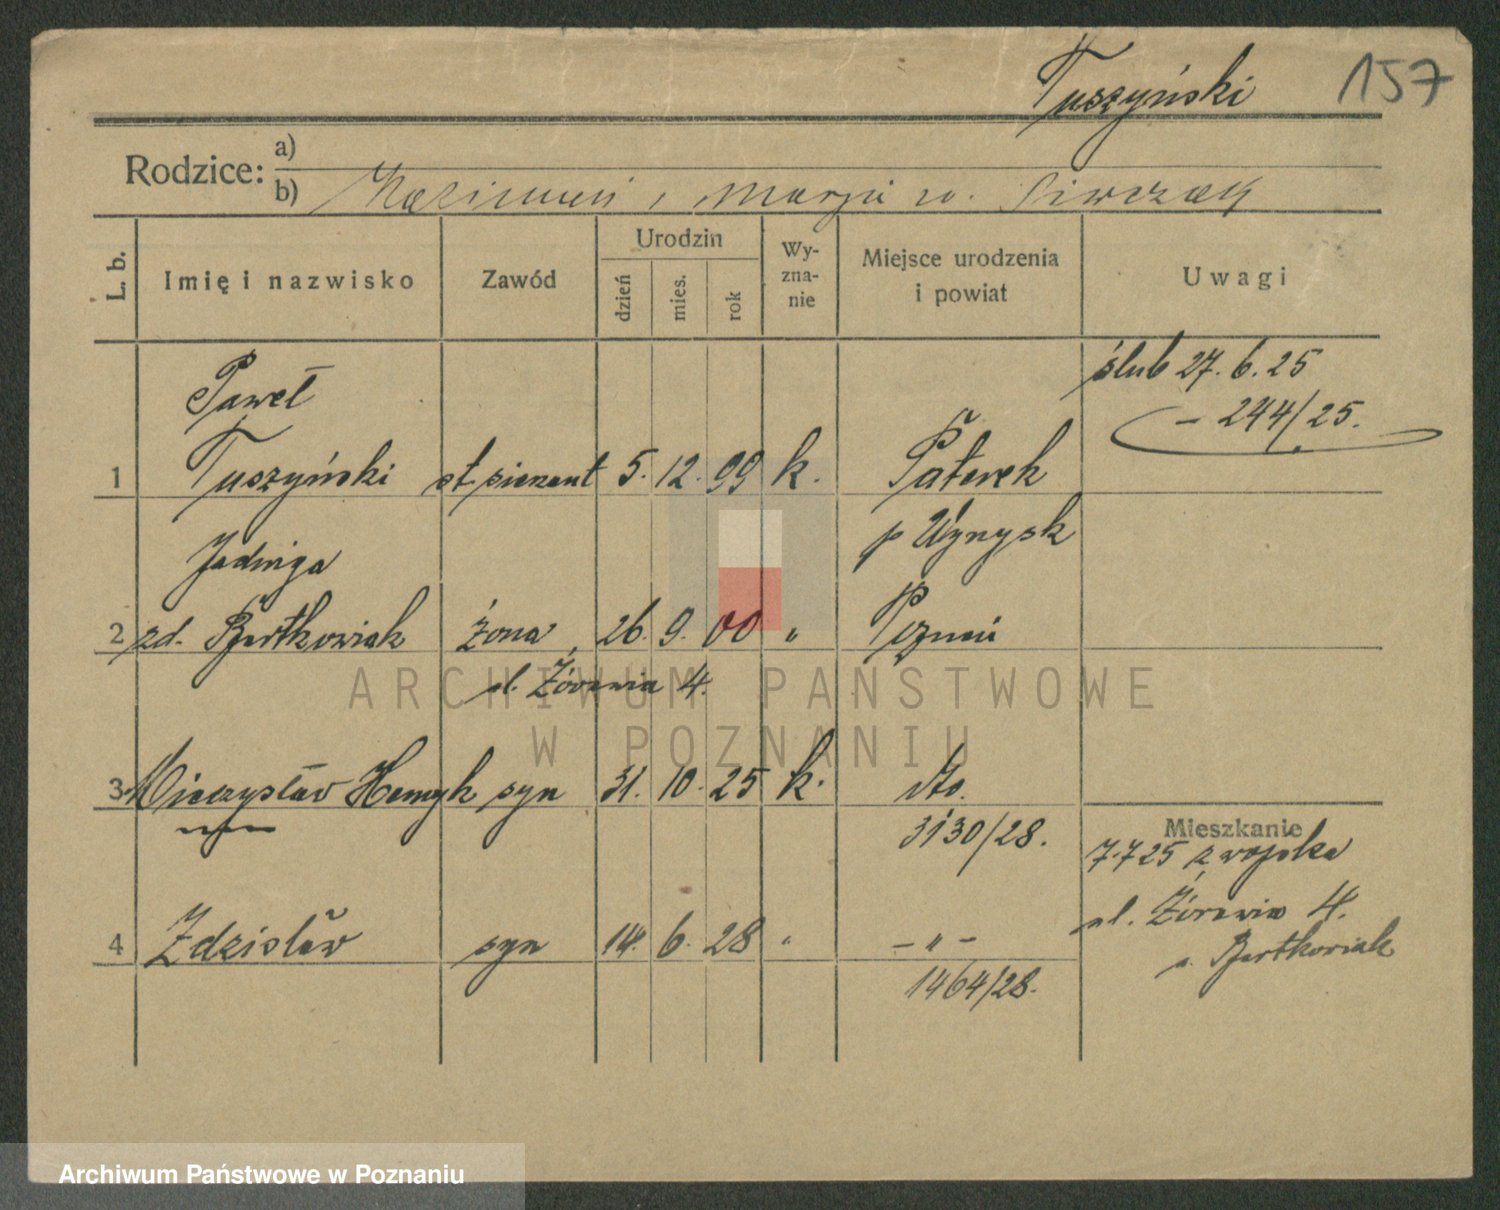 Tuszyński 157
Rodzice: a)
b) Kazimierz i Marja ur. Siwczak
L. b. Imię i nazwisko Zawód Urodzin dzień mies. rok Wy-zna-nie Miejsce urodzenia i powiat Uwagi
ślub 27.6.25
Paweł
– 244/25.
1 Tuszyński st. sierżant 5. 12. 99 k. Paterek
p Wyrzysk
Jadwiga
2 zd. Bartkowiak żona 26. 9. 00 " Poznań
ul. Żórawia 4.
ARCHIWUM PAŃSTWOWE
W POZNANIU
3 Mieczysław Henryk syn 31. 10. 25 k. dto.
3130/28.
Mieszkanie
7.7 25 z wojska
ul. Żórawia 4.
4 Zdzisław syn 14. 6. 28 " – " –
Bartkowiak
1464/28.
Archiwum Państwowe w Poznaniu